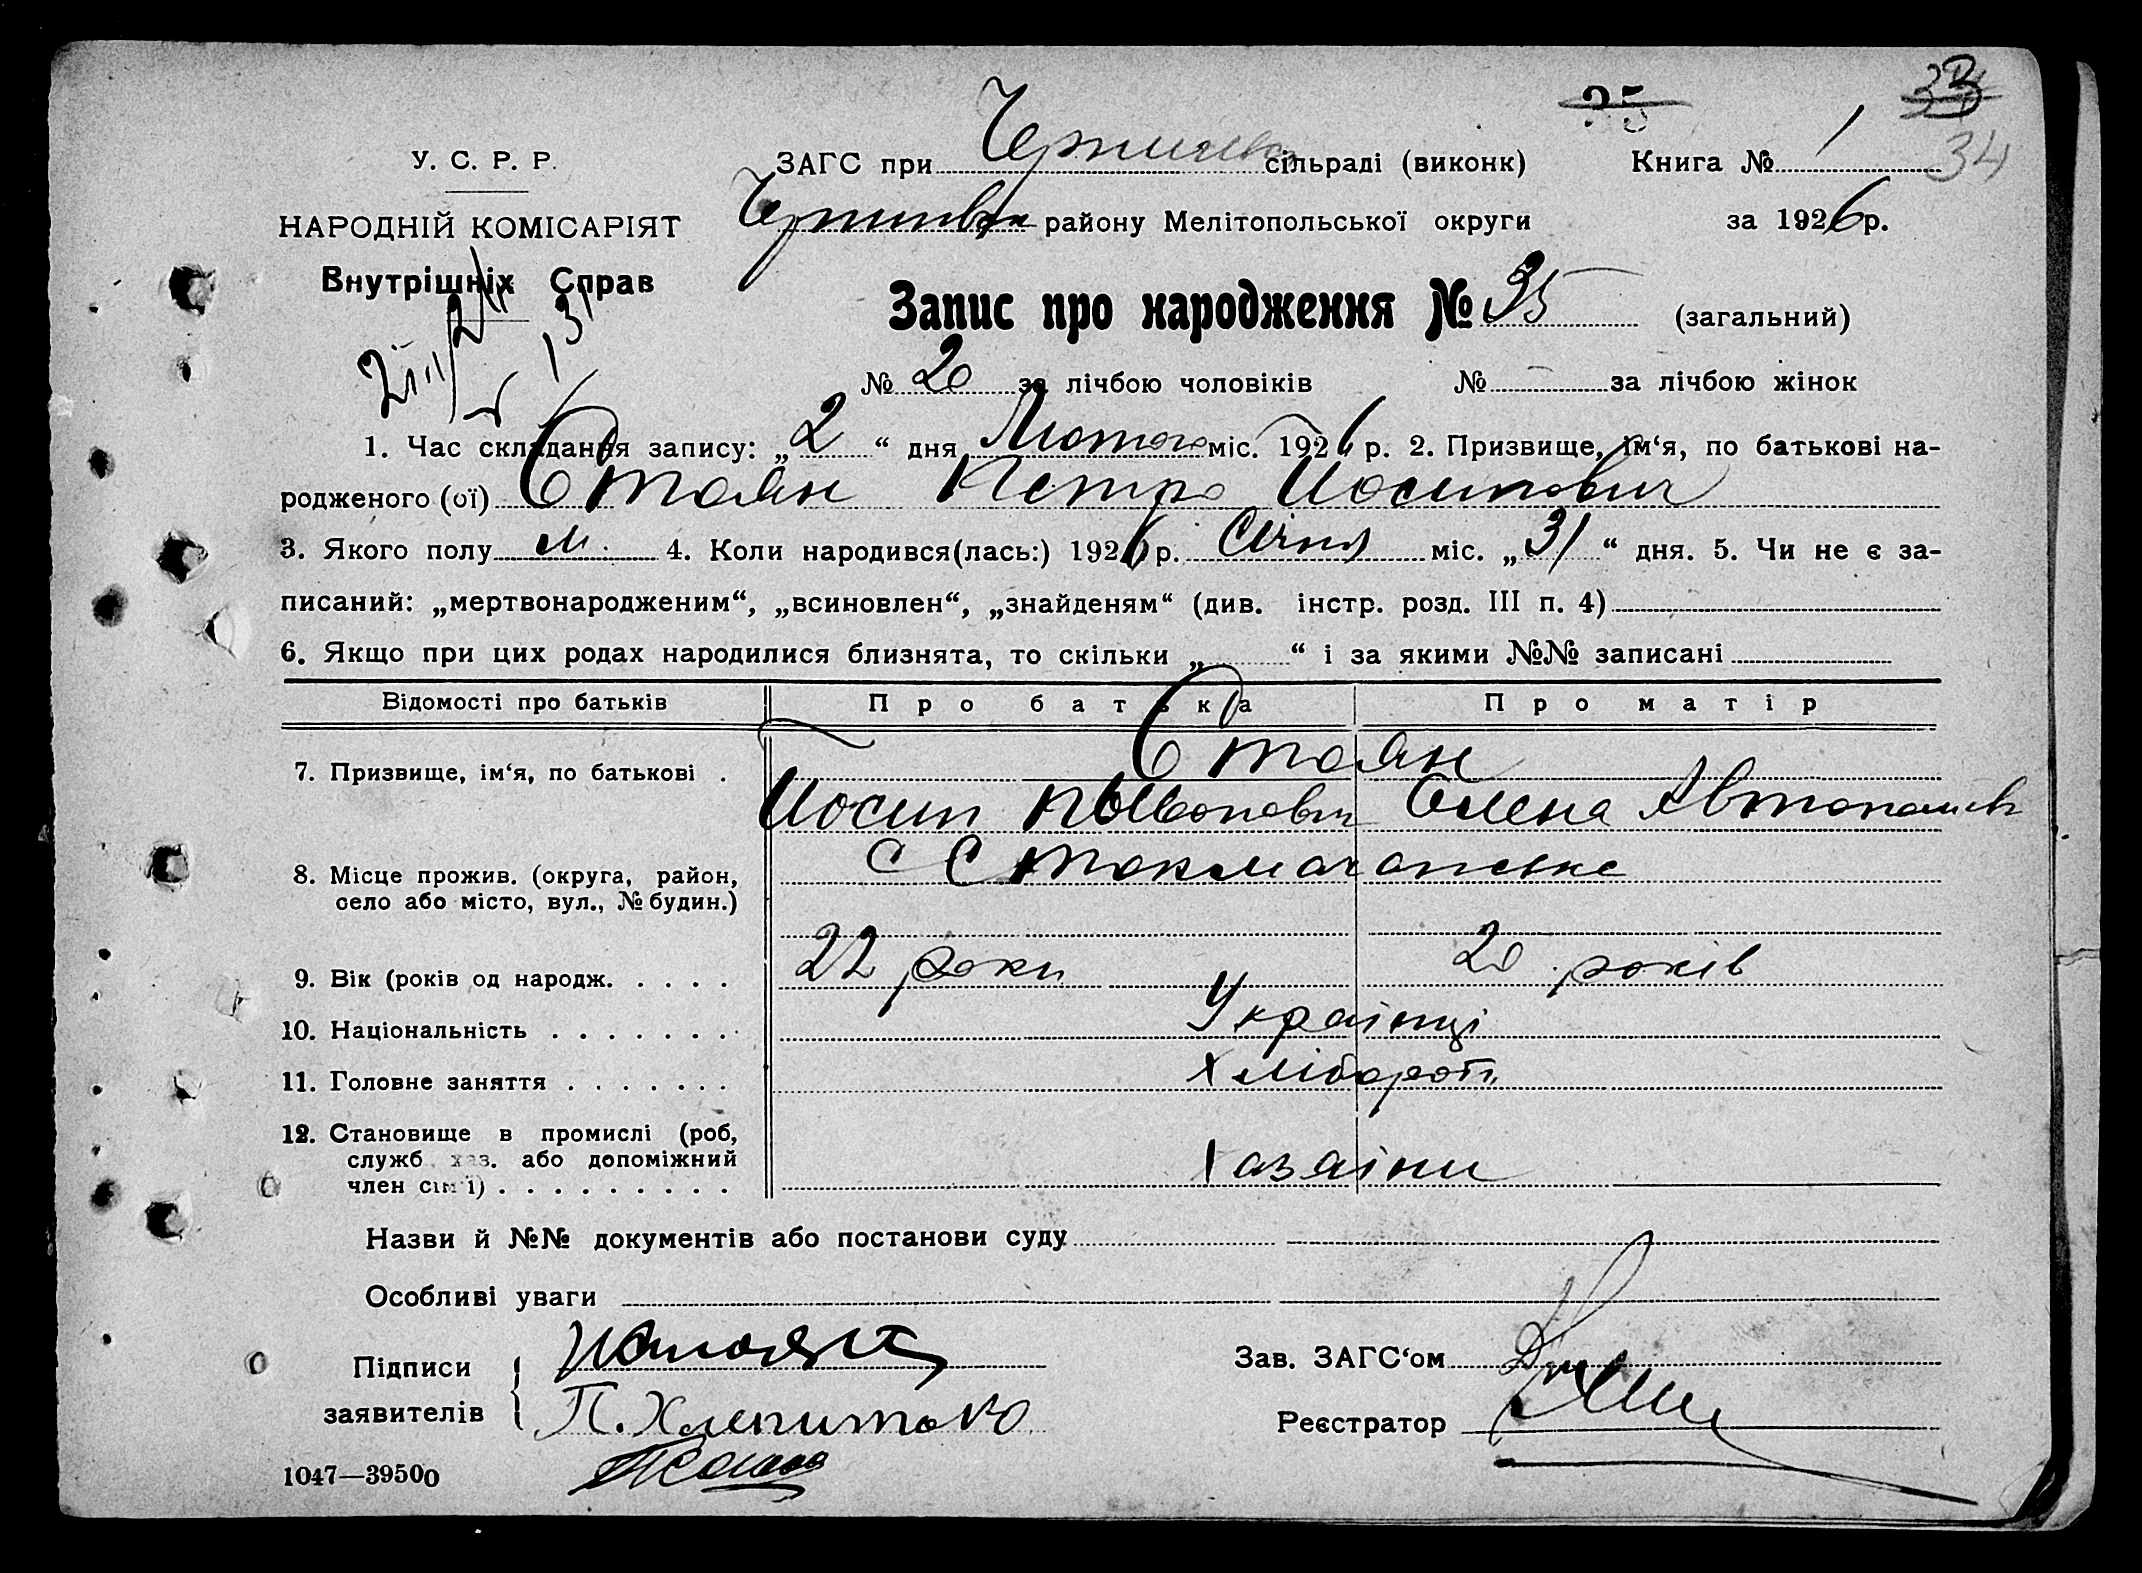 35 33
34
У. С. Р. Р. ЗАГС при сільраді (виконк) Книга № 1
НАРОДНІЙ КОМІСАРІЯТ району Мелітопольської округи за 1926 р.
Внутрішніх Справ
Запис про народження № 35 (загальний)
№ 20 за лічбою чоловіків № за лічбою жінок
1. Час складання запису: „2“ дня Лютого міс. 1926 р. 2. Призвище, ім‘я, по батькові на-
родженого (ої) Стоян Петро Иосипович
3. Якого полу м. 4. Коли народився(лась:) 1926 р. Січня міс. „31“ дня. 5. Чи не є за-
писаний: „мертвонародженим“, „всиновлен“, „знайденям“ (див. інстр. розд. III п. 4)
6. Якщо при цих родах народилися близнята, то скільки „ “ і за якими №№ записані
Відомості про батьків Про батька Про матір
Стоян
7. Призвище, ім‘я, по батькові .
Иосип Олена
8. Місце прожив. (округа, район,
село або місто, вул., № будин.)
9. Вік (років од народж. . . . . 22 роки 20 років
10. Національність . . . . . . . Українці
11. Головне заняття . . . . . . . Хлібороби
12. Становище в промислі (роб,
служб. хаз. або допоміжний
член сім‘ї) . . . . . . . . . Хазяіни
Назви й №№ документів або постанови суду
Особливі уваги
Підписи
Зав. ЗАГС‘ом
заявителів
Реєстратор
1047—39500